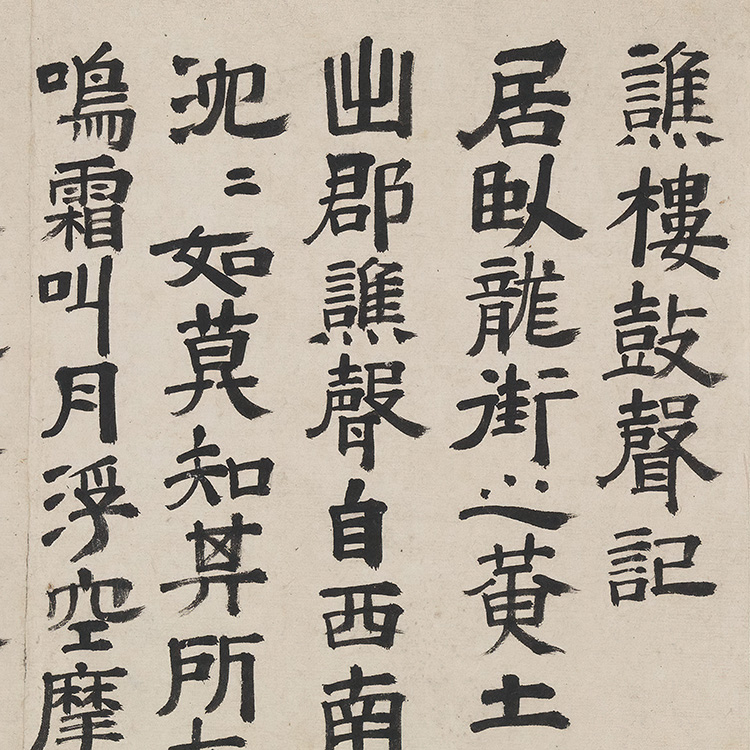 譙樓鼓聲記
居臥龍街之黃土
出郡譙聲自西南
沈〻如莫知其所
鳴霜叫月浮空摩